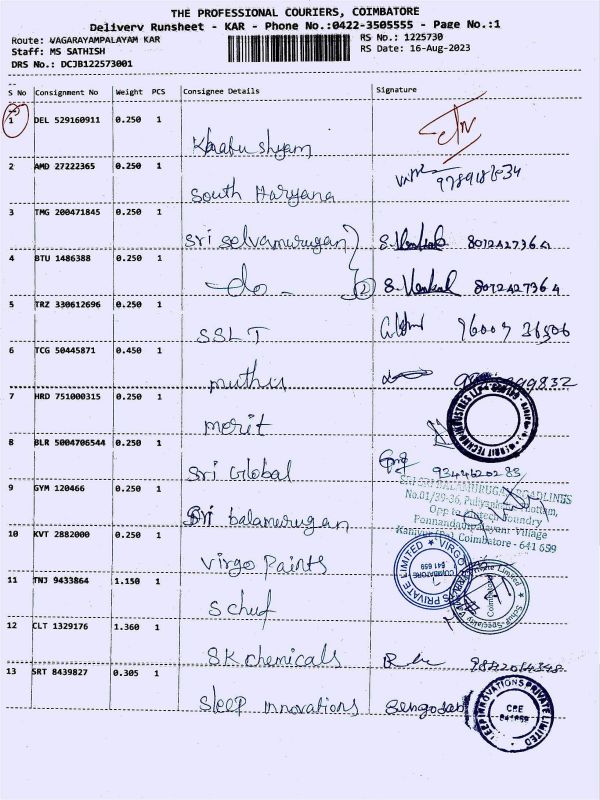 THE PROFESSIONAL COURIERS, COIMBATORE
Delivery Runsheet - KAR - Phone No.:0422-3505555 - Page No.:1
Route: VAGARAYAMPALAYAM KAR RS No.: 1225730
Staff: MS SATHISH RS Date: 16-Aug-2023
DRS No.: DCJB122573001
S No Consignment No Weight PCS Consignee Details Signature
1 DEL 529160911 0.250 1
Khatu shyam
2 AMD 27222365 0.250 1
South Haryana
3 TMG 200471845 0.250 1
Sri Selvamurugan S. Venkat 8072427364
4 BTU 1486388 0.250 1
-do- 2 S. Venkat 8072427364
5 TRZ 330612696 0.250 1
SSLT 96007 36506
6 TCG 50445871 0.450 1
muthu
7 HRD 751000315 0.250 1
merit
8 BLR 5004706544 0.250 1
Sri Global 9344620283
9 GYM 120466 0.250 1
SRI BALAMURUGAN ROADLINES
No.01/39-36, Puliyankattu Thottam,
Opp to Fintech Foundry
Ponnandampalayam Village
Kaniyur (Po), Coimbatore - 641 659
Sri balamurugan
10 KVT 2882000 0.250 1
Virgo Paints
VIRGO PRIVATE LIMITED
COIMBATORE
641 659
11 TNJ 9433864 1.150 1
Schuf
Private Limited
Coimbatore
12 CLT 1329176 1.360 1
SK chemicals
13 SRT 8439827 0.305 1
Sleep Innovations
SLEEP INNOVATIONS PRIVATE LIMITED
CBE
641659